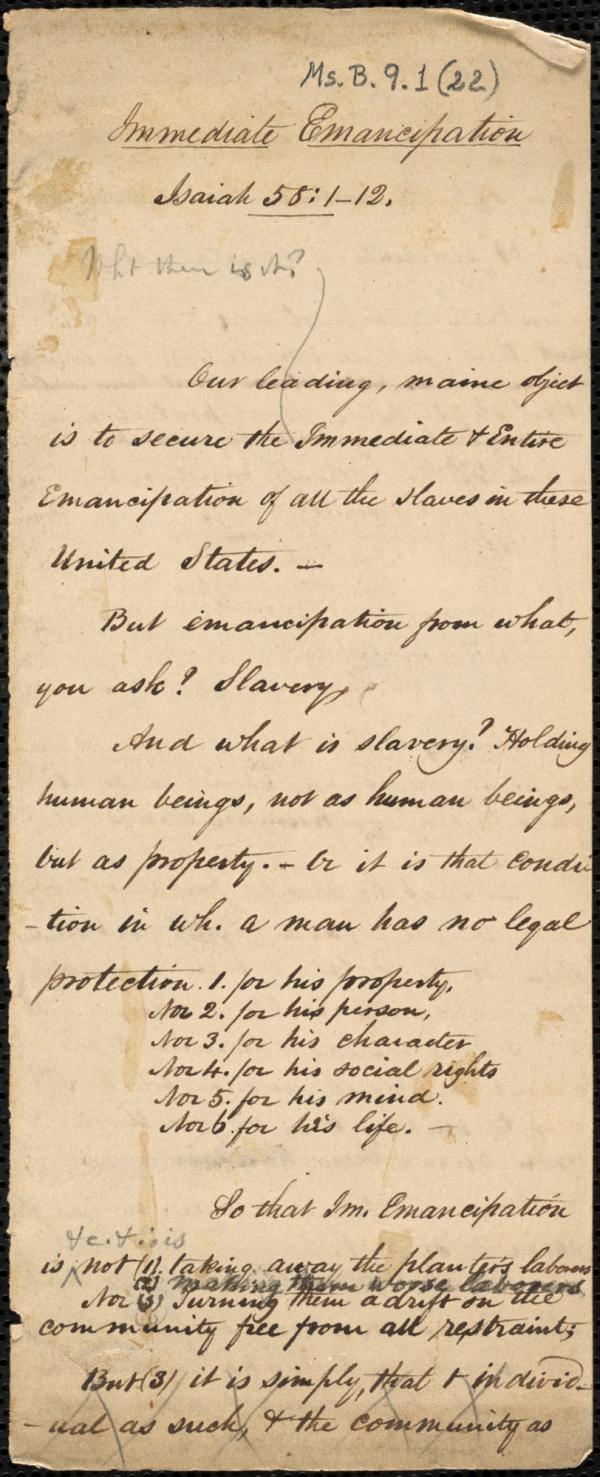 Ms. B. 9.1 (22)
Immediate Emancipation
Isaiah 58:1-12.
Wht then is it?
Our leading, maine object
is to secure the Immediate & Entire
Emancipation of all the slaves in these
United States. —
But emancipation from what,
you ask? Slavery,
And what is slavery? Holding
human beings, not as human beings,
but as property. - Or it is that condi
-tion in wh. a man has no legal
protection. 1. for his property,
Nor 2. for his person,
Nor 3. for his character
Nor 4. for his social rights
Nor 5. for his mind.
Nor 6. for his life. —
So that Im. Emancipation
is not (1). taking away the planter's laborers
(2) making them worse laborers
Nor (3) Turning them adrift on the
community free from all restraint;
But (3) it is simply, that t individ-
-ual as such, & the community as